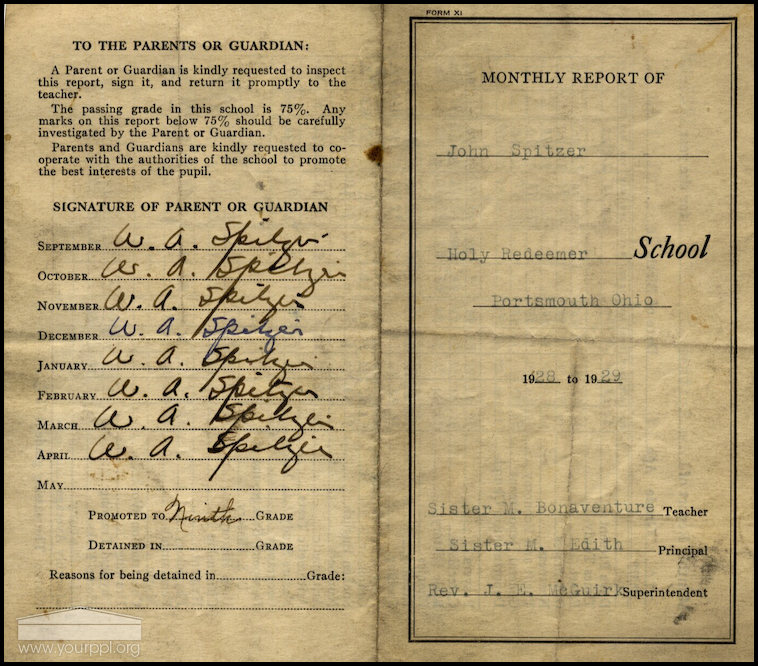 TO THE PARENTS OR GUARDIAN:
A Parent or Guardian is kindly requested to inspect
this report, sign it, and return it promptly to the
teacher.
The passing grade in this school is 75%. Any
marks on this report below 75% should be carefully
investigated by the Parent or Guardian.
Parents and Guardians are kindly requested to co-
operate with the authorities of the school to promote
the best interests of the pupil.
SIGNATURE OF PARENT OR GUARDIAN
SEPTEMBER W. A. Spitzer
OCTOBER W. A. Spitzer
NOVEMBER W. A. Spitzer
DECEMBER W. A. Spitzer
JANUARY W. A. Spitzer
FEBRUARY W. A. Spitzer
MARCH W. A. Spitzer
APRIL W. A. Spitzer
MAY
PROMOTED TO Ninth GRADE
DETAINED IN GRADE
Reasons for being detained in Grade:
www.yourppl.org
FORM XI
MONTHLY REPORT OF
John Spitzer
Holy Redeemer School
Portsmouth Ohio
1928 to 1929
Sister M. Bonaventure Teacher
Sister M. Edith Principal
Rev. J. E. McGuirk Superintendent